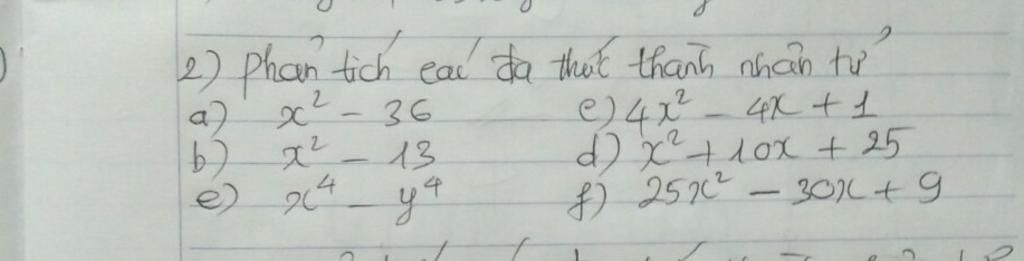 2) Phân tích các đa thức thành nhân tử
a) x² - 36 c) 4x² - 4x + 1
b) x² - 13 d) x² + 10x + 25
e) x⁴ - y⁴ f) 25x² - 30x + 9